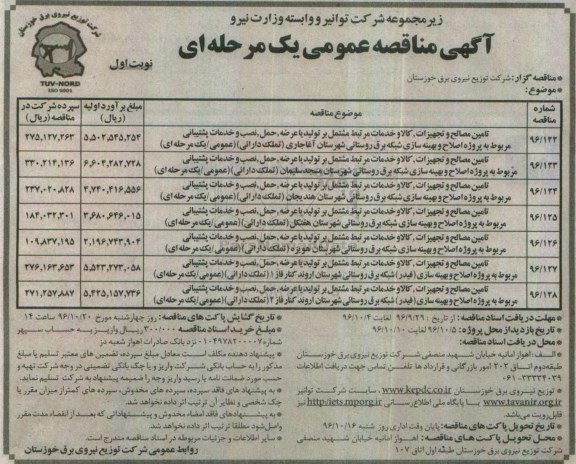 زیرمجموعه شرکت توانیر و وابسته وزارت نیرو
آگهی مناقصه عمومی یک مرحله ای
نوبت اول
شرکت توزیع نیروی برق خوزستان
TUV-NORD
* مناقصه گزار: شرکت توزیع نیروی برق خوزستان
* موضوع:
شماره مناقصه | موضوع مناقصه | مبلغ برآورد اولیه (ریال) | سپرده شرکت در مناقصه (ریال)
۹۶/۱۲۲ | تامین مصالح و تجهیزات، کالا و خدمات مرتبط مشتمل بر تولید یا عرضه، حمل، نصب و خدمات پشتیبانی
مربوط به پروژه اصلاح و بهینه سازی شبکه برق روستائی شهرستان آغاجاری (تملک دارائی) (عمومی/یک مرحله ای) | ۵,۵۰۲,۵۴۵,۲۵۴ | ۲۷۵,۱۲۷,۲۶۳
۹۶/۱۲۳ | تامین مصالح و تجهیزات، کالا و خدمات مرتبط مشتمل بر تولید یا عرضه، حمل، نصب و خدمات پشتیبانی
مربوط به پروژه اصلاح و بهینه سازی شبکه برق روستائی شهرستان مسجدسلیمان (تملک دارائی) (عمومی/یک مرحله ای) | ۶,۶۰۴,۲۸۲,۷۲۸ | ۳۳۰,۲۱۴,۱۳۶
۹۶/۱۲۴ | تامین مصالح و تجهیزات، کالا و خدمات مرتبط مشتمل بر تولید یا عرضه، حمل، نصب و خدمات پشتیبانی
مربوط به پروژه اصلاح و بهینه سازی شبکه برق روستائی شهرستان هندیجان (تملک دارائی) (عمومی/یک مرحله ای) | ۴,۷۴۰,۴۱۶,۵۵۶ | ۲۳۷,۰۲۰,۸۲۸
۹۶/۱۲۵ | تامین مصالح و تجهیزات، کالا و خدمات مرتبط مشتمل بر تولید یا عرضه، حمل، نصب و خدمات پشتیبانی
مربوط به پروژه اصلاح و بهینه سازی شبکه برق روستائی شهرستان هفتکل (تملک دارائی) (عمومی/یک مرحله ای) | ۳,۶۸۰,۶۴۶,۰۱۵ | ۱۸۴,۰۳۲,۳۰۱
۹۶/۱۲۶ | تامین مصالح و تجهیزات، کالا و خدمات مرتبط مشتمل بر تولید یا عرضه، حمل، نصب و خدمات پشتیبانی
مربوط به پروژه اصلاح و بهینه سازی شبکه برق روستائی شهرستان هویزه (تملک دارائی) (عمومی/یک مرحله ای) | ۲,۱۹۶,۷۴۳,۹۰۴ | ۱۰۹,۸۳۷,۱۹۵
۹۶/۱۲۷ | تامین مصالح و تجهیزات، کالا و خدمات مرتبط مشتمل بر تولید یا عرضه، حمل، نصب و خدمات پشتیبانی
مربوط به پروژه اصلاح و بهینه سازی (فیدر) شبکه برق روستائی شهرستان اروند کنار فاز ۱ (تملک دارائی) (عمومی/یک مرحله ای) | ۵,۵۲۳,۲۷۳,۰۵۸ | ۲۷۶,۱۶۳,۶۵۳
۹۶/۱۲۸ | تامین مصالح و تجهیزات، کالا و خدمات مرتبط مشتمل بر تولید یا عرضه، حمل، نصب و خدمات پشتیبانی
مربوط به پروژه اصلاح و بهینه سازی (فیدر) شبکه برق روستائی شهرستان اروند کنار فاز ۲ (تملک دارائی) (عمومی/یک مرحله ای) | ۵,۴۲۵,۱۵۷,۷۳۶ | ۲۷۱,۲۵۷,۸۸۷
* مهلت دریافت اسناد مناقصه: از تاریخ ۹۶/۹/۲۹ لغایت ۹۶/۱۰/۴
* تاریخ بازدید از محل پروژه: ۹۶/۱۰/۵ لغایت ۹۶/۱۰/۱۰
* محل دریافت اسناد مناقصه:
الف: اهواز امانیه خیابان شهید منصفی شرکت توزیع نیروی برق خوزستان
طبقه دوم اتاق ۲۰۲ امور بازرگانی و قراردادها تلفن تماس جهت دریافت اطلاعات
۰۶۱-۳۳۳۳۴۰۳۹
توزیع نیروی برق خوزستان www.kepdc.co.ir، سایت شرکت توانیر
www.tavanir.org.ir یا پایگاه ملی اطلاع رسانی http://iets.mporg.ir نیز
قابل رویت می باشد.
* تاریخ تحویل پاکت های مناقصه: پایان وقت اداری روز شنبه ۹۶/۱۰/۱۶
* محل تحویل پاکت های مناقصه: اهواز امانیه خیابان شهید منصفی
شرکت توزیع نیروی برق خوزستان طبقه اول اتاق ۱۰۷
* تاریخ گشایش پاکت های مناقصه: روز چهارشنبه مورخ ۹۶/۱۰/۲۰ ساعت ۱۴
* مبلغ خرید اسناد مناقصه: ۳۰۰/۰۰۰ ریال واریز به حساب سپهر
شماره ۰۱۰۴۹۷۸۲۰۰۰۰۷ نزد بانک صادرات اهواز شعبه در
* پیشنهاد دهنده مکلف است معادل مبلغ سپرده، تضمین های معتبر تسلیم یا مبلغ
مذکور را به حساب بانکی شرکت واریز و یا چک بانکی تضمینی در وجه شرکت تهیه و
حسب مورد ضمانت نامه یا رسید واریز وجه را ضمیمه پیشنهاد به شرکت تسلیم نماید.
* به پیشنهاد های فاقد سپرده، سپرده های مخدوش، سپرده های کمتر از میزان مقرر یا
چک شخصی و نظایر آن ترتیب اثر داده نخواهد شد.
* به پیشنهادهای فاقد امضاء، مخدوش و پیشنهاداتی که بعد از انقضاء مدت مقرر
واصل شود مطلقا ترتیب اثر داده نخواهد شد.
* سایر اطلاعات و جزئیات مربوطه در اسناد مناقصه مندرج است.
روابط عمومی شرکت توزیع نیروی برق خوزستان